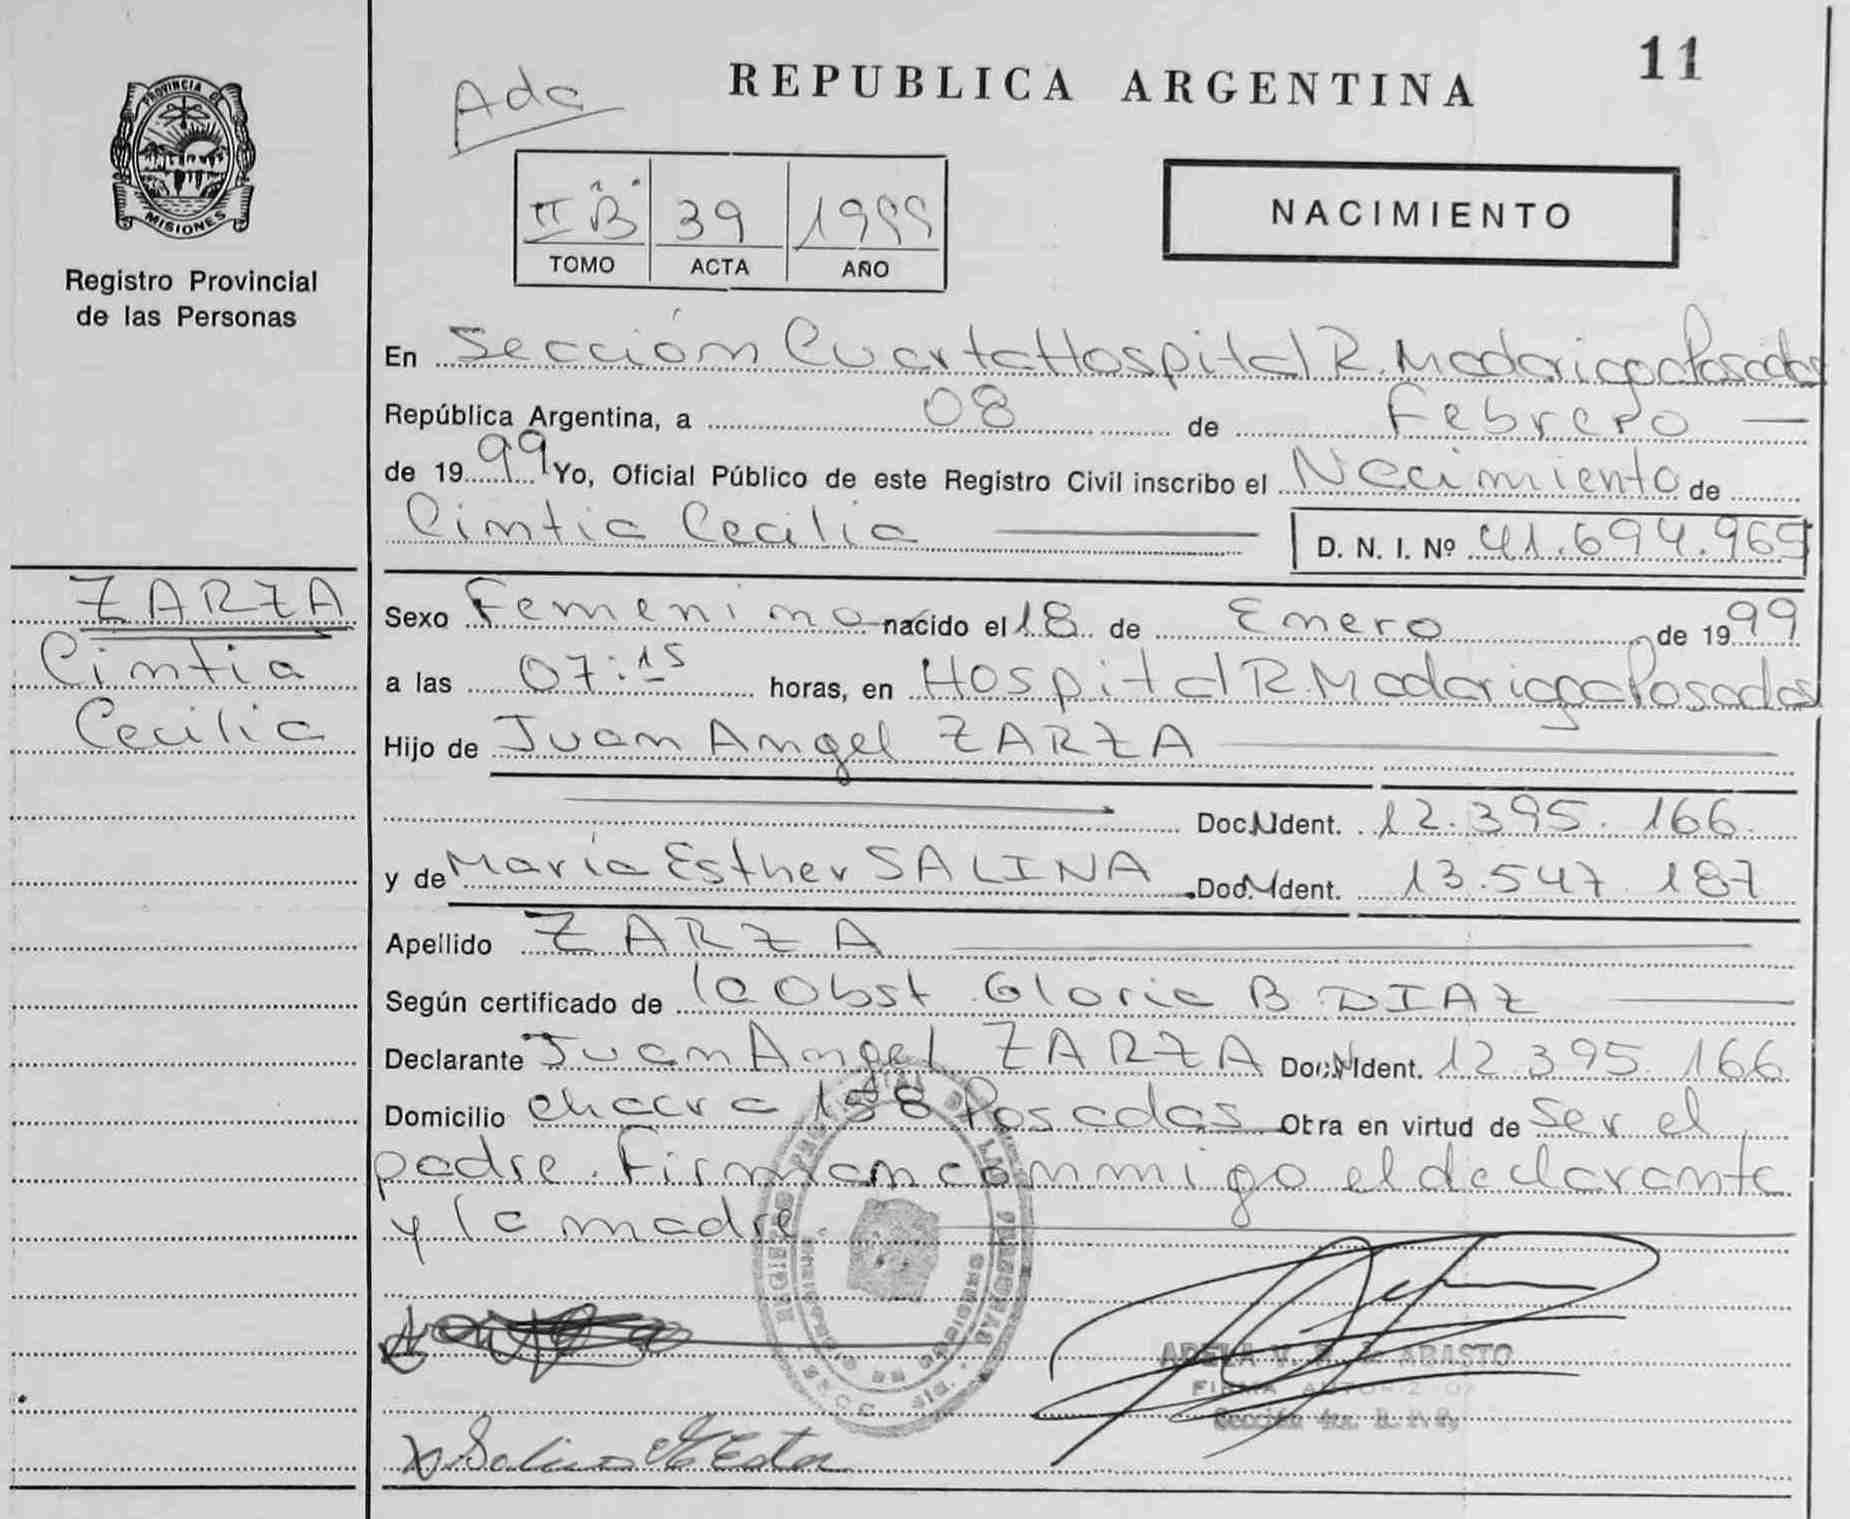 11
REPUBLICA ARGENTINA
Ada
PROVINCIA DE
MISIONES
Registro Provincial
de las Personas
II "B" 39 1999
TOMO ACTA AÑO
NACIMIENTO
En Sección Cuarta Hospital R. Madariaga Posadas
República Argentina, a 08 de Febrero
de 1999 Yo, Oficial Público de este Registro Civil inscribo el Nacimiento de
Cintia Cecilia D. N. I. Nº 41.694.969
ZARZA
Cintia
Cecilia
Sexo Femenino nacido el 18 de Enero de 1999
a las 07:15 horas, en Hospital R. Madariaga Posadas
Hijo de Juan Angel ZARZA
Doc. N Ident. 12.395.166
y de María Esther SALINA Doc. N Ident. 13.547.187
Apellido ZARZA
Según certificado de la Obst Gloria B DIAZ
Declarante Juan Angel ZARZA Doc. N Ident. 12.395.166
Domicilio chacra 158 Posadas Otra en virtud de ser el
padre. Firman conmigo el declarante
y la madre.
ABASTO